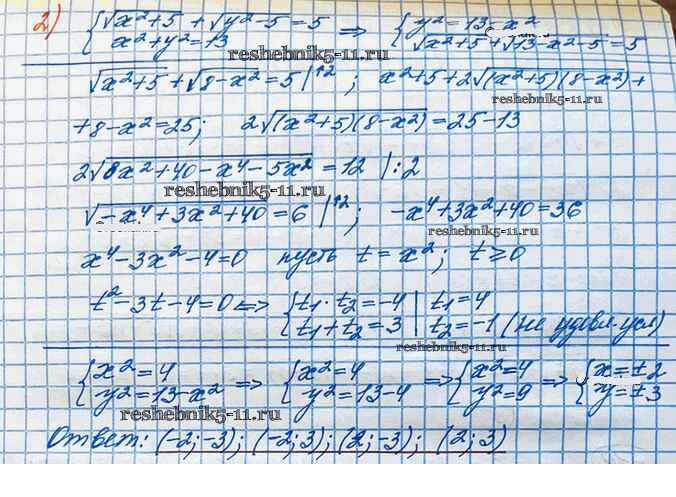 2) {√x²+5 + √y²-5 = 5 ⇒ {y² = 13-x²
x²+y² = 13 √x²+5 + √13-x²-5 = 5
reshebnik5-11.ru
√x²+5 + √8-x² = 5 |↑2 ; x²+5+2√(x²+5)(8-x²) +
reshebnik5-11.ru
+8-x² = 25; 2√(x²+5)(8-x²) = 25-13
2√8x²+40-x⁴-5x² = 12 | :2
reshebnik5-11.ru
√-x⁴+3x²+40 = 6 |↑2 ; -x⁴+3x²+40 = 36
reshebnik5-11.ru
x⁴-3x²-4=0 пусть t = x²; t ≥ 0
t²-3t-4=0 ⇔ {t₁·t₂ = -4 | t₁ = 4
t₁+t₂ = 3 | t₂ = -1 (не удовл. усл)
reshebnik5-11.ru
{x² = 4 ⇒ {x² = 4 ⇒ {x² = 4 ⇒ {x = ±2
y² = 13-x² y² = 13-4 y² = 9 y = ±3
reshebnik5-11.ru
Ответ: (-2; -3); (-2; 3); (2; -3); (2; 3)